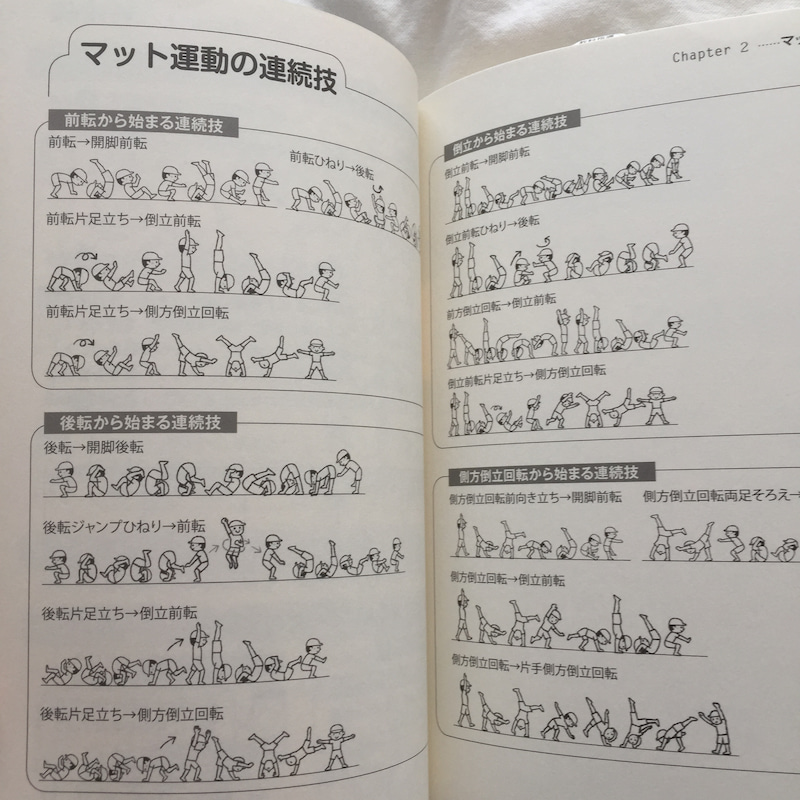 マット運動の連続技
前転から始まる連続技
前転→開脚前転
前転ひねり→後転
前転片足立ち→倒立前転
前転片足立ち→側方倒立回転
後転から始まる連続技
後転→開脚後転
後転ジャンプひねり→前転
後転片足立ち→倒立前転
後転片足立ち→側方倒立回転
Chapter 2 ……マッ
倒立から始まる連続技
倒立前転→開脚前転
倒立前転ひねり→後転
前方倒立回転→倒立前転
倒立前転片足立ち→側方倒立回転
側方倒立回転から始まる連続技
側方倒立回転前向き立ち→開脚前転
側方倒立回転両足そろえ→
側方倒立回転→倒立前転
側方倒立回転→片手側方倒立回転